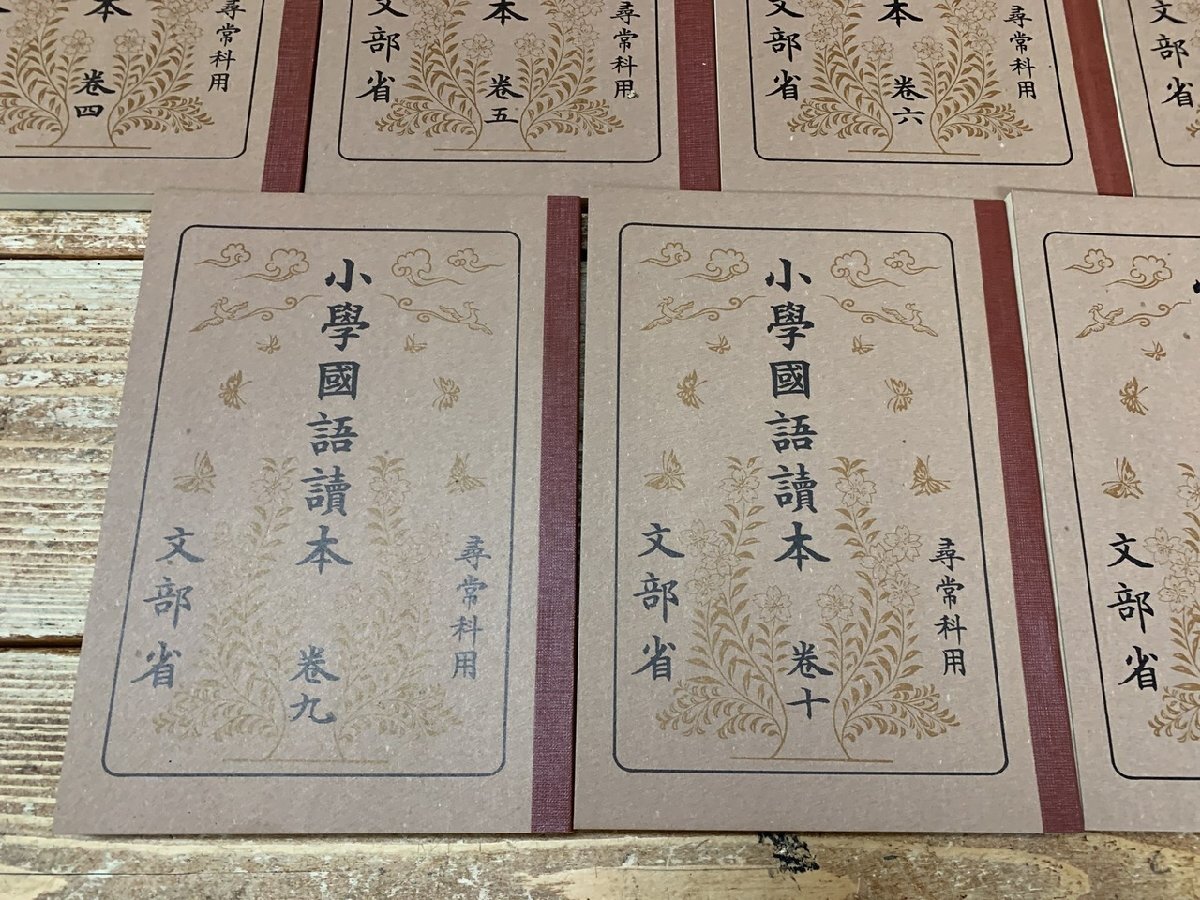 本 卷四
尋常科用
文部省
本 卷五
尋常科用
文部省
本 卷六
尋常科用
文部省
文部省
尋常科用
小學國語讀本 卷九
文部省
尋常科用
小學國語讀本 卷十
文部省
文部省